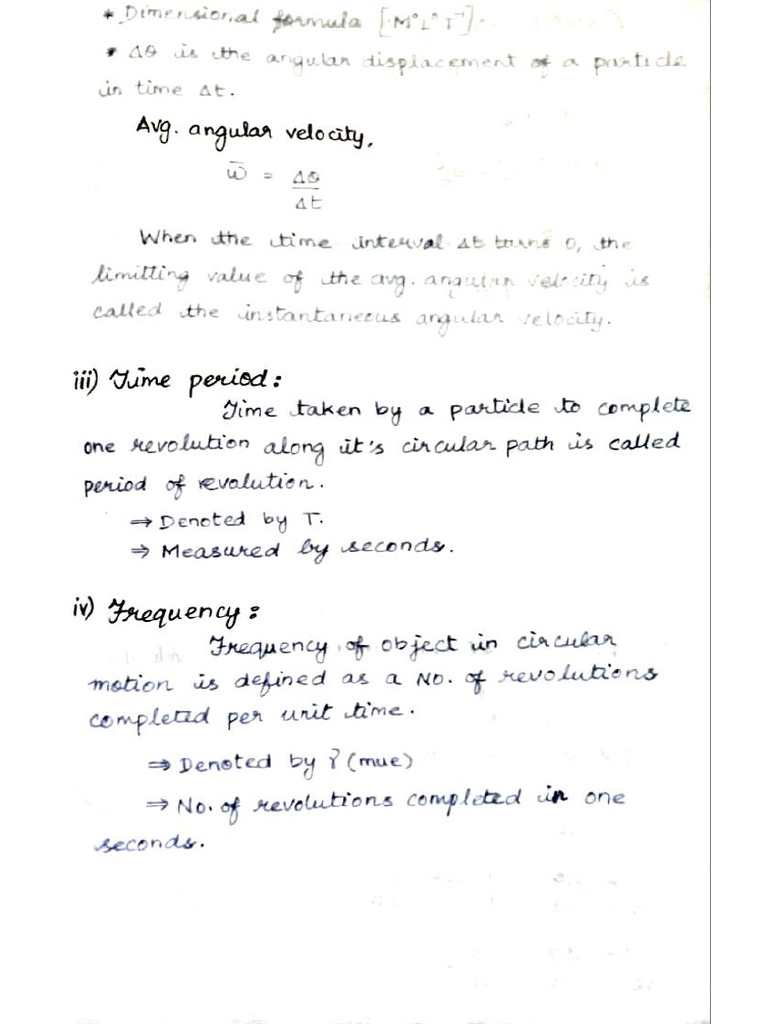 * Dimensional formula [M°L°T⁻¹].
• Δθ is the angular displacement of a particle
in time Δt.
Avg. angular velocity,
ω̄ = Δθ/Δt
When the time interval Δt turns 0, the
limitting value of the avg. angular velocity is
called the instantaneous angular velocity.
iii) Time period:
Time taken by a particle to complete
one revolution along it's circular path is called
period of revolution.
⇒ Denoted by T.
⇒ Measured by seconds.
iv) Frequency:
Frequency of object in circular
motion is defined as a No. of revolutions
completed per unit time.
⇒ Denoted by (mue)
⇒ No. of revolutions completed in one
seconds.